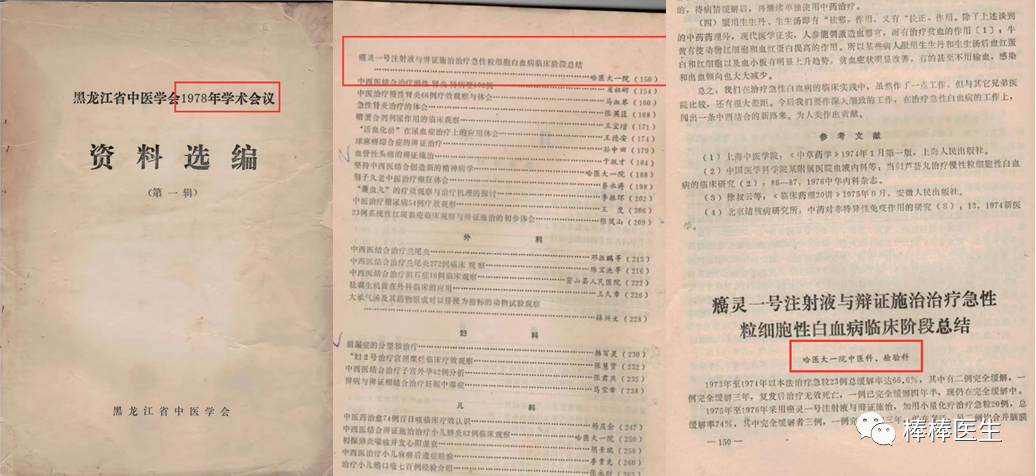 黑龙江省中医学会1978年学术会议
资料选编
(第一辑)
黑龙江省中医学会
癌灵一号注射液与辩证施治治疗急性粒细胞白血病临床阶段总结
哈医大一院(150)
(154)
中医治疗慢性肾炎66例疗效观察与体会 马淑琴(160)
急性肾炎治疗的体会 (168)
(171)
"活血化淤"在尿血症治疗上的应用体会 王德安(174)
(180)
血管性头病的辨证施治 于致才(184)
坚持中西医结合创造新的精神病学 哈医大一院(188)
(198)
"的疗效观察与治疗机理的探讨 李振挥(202)
中医治疗糖尿病54例疗效观察 (206)
23例系统性红斑狼疮临床观察与辨证施治的初步体会 张凤山(209)
外 科
中西医结合治疗兰尾炎 (213)
中西医结合治疗兰尾炎272例临床观察 陈宝池等(216)
中西医结合治疗胆石症16例临床观察 密山县人民医院(222)
祛腐生肌膏在外科临床的应用 王久章(226)
大承气汤及其药物组成对以排便为指标的动物试验观察
(228)
妇 科
崩漏症的分型和治疗 韩百灵(230)
"妇2号治疗宫颈糜烂临床疗效观察 张慧贤(232)
中西医结合治疗子宫外孕62例分析 (235)
辨病与辨证相结合治疗妊娠中毒症 马宝章(238)
儿 科
中医药治愈74例百日咳临床疗效认识 (247)
中西医结合辨证施治治疗小儿肺炎82例临床观察 哈医大一院(250)
(258)
中西医结合治疗小儿麻痹后遗症的体会 (260)
治疗小儿鹅口疮七百例经验介绍
的,待病情缓解后,再继续单独使用中药治疗。
(四)服用生生丹、生生汤即有"祛邪"作用,又有"扶正"作用。除了上述谈到
的中药药理外,现代医学证实,人参能刺激造血器官,而有治疗贫血的作用〔1〕;牛
黄有使动物红细胞和血红蛋白提高的作用。所以某些病人服用生生丹和生生汤后血红蛋
白和红细胞以及血小板有明显上升趋势,贫血症状明显改善,有的甚至不用输血,感染
和出血倾向也大大减少。
总之,我们在治疗急性白血病的临床实践中,虽然作了一点工作,但与其它兄弟医
院比较,还有很大差距。今后我们要作深入细致的工作,在治疗急性白血病的工作上,
闯出一条中西结合的新路来。为人类作出贡献。
参考文献
(1)上海中医学院:《中草药学》1974年1月第一版,上海人民出版社。
(2)中国医学科学院某附属医院血液内科等:当归芦荟丸治疗慢性粒细胞性白血
病的临床研究(2):86—87,1976中华内科杂志。
(3)徐叔云等:《临床药理20讲》1975年8月,安徽人民出版社。
(4)北京结核病研究所,中药对非特异性免疫作用的研究(8):13,1974新医
学。
癌灵一号注射液与辩证施治治疗急性
粒细胞性白血病临床阶段总结
哈医大一院中医科、检验科
1973年至1974年以本法治疗急粒23例总缓解率达66.6%,其中有二例完全缓解,一
例完全缓解三年,复发后治疗无效死亡,一例已完全缓解四年半,现仍在完全缓解中。
1975年至1976年采用癌灵一号注射液与辨证施治,加用小量化疗治疗急粒20例,总
缓解率74%,其中完全缓解者三例,一例完全缓解
—150—
棒棒医生